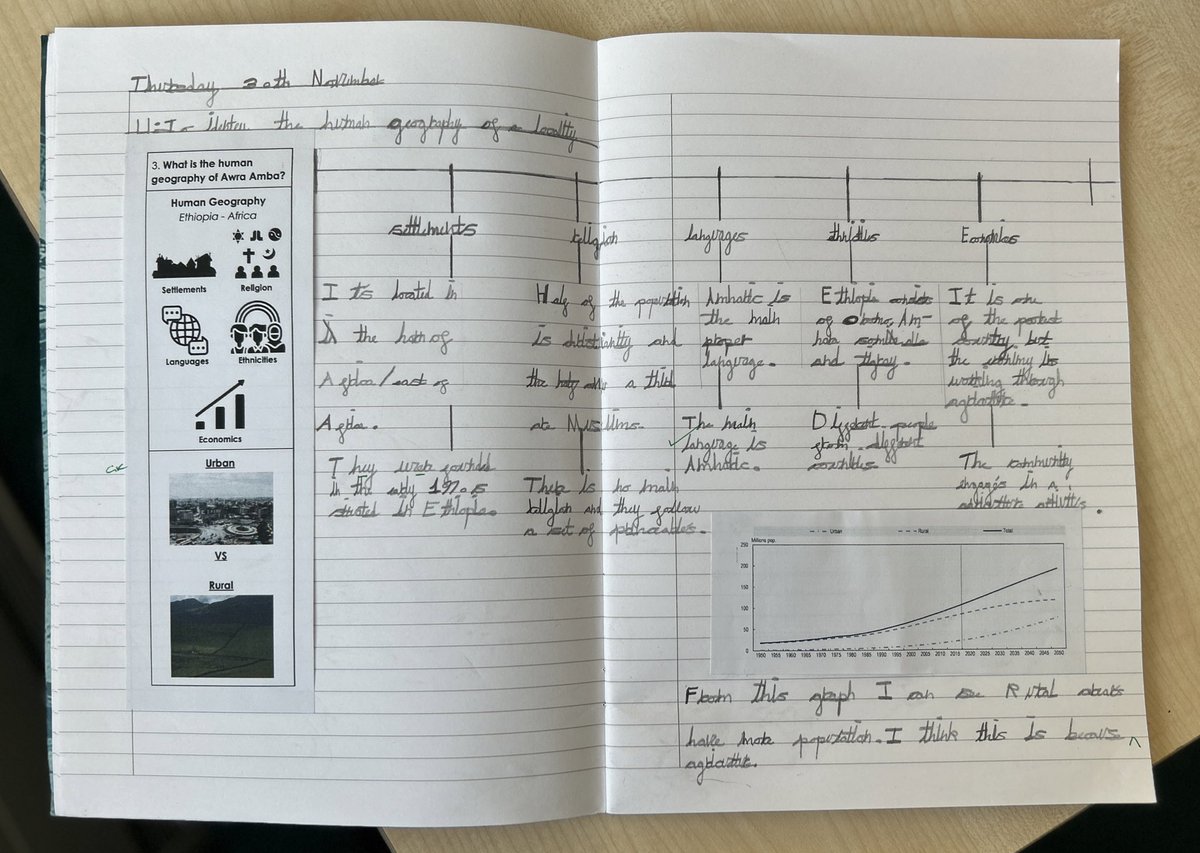 Thursday 30th November
the human geography of a locality
3. What is the human
geography of Awra Amba?
Human Geography
Ethiopia - Africa
Settlements
Religion
Languages
Ethnicities
Economics
Urban
VS
Rural
settlments
religion
languages
Its located in
the horn of
Africa/east of
Africa.
They were founded
in the early 1970s
in Ethiopia.
Half of the population
is christianity and
the half a third
are Muslims.
There is no main
religion and they follow
a set of
Amharic is
the main
proper
language.
The main
language is
Amharic.
Ethiopia
of
and tigray.
Diffrent people
from diffrent
countries.
It is one
of the poorest
country but
the is
working through
The community
engages in
Urban
Rural
Total
Millions pop.
250
200
150
100
50
0
1950 1955 1960 1965 1970 1975 1980 1985 1990 1995 2000 2005 2010 2015 2020 2025 2030 2035 2040 2045 2050
From this graph I can see Rural
have more population. I think this is